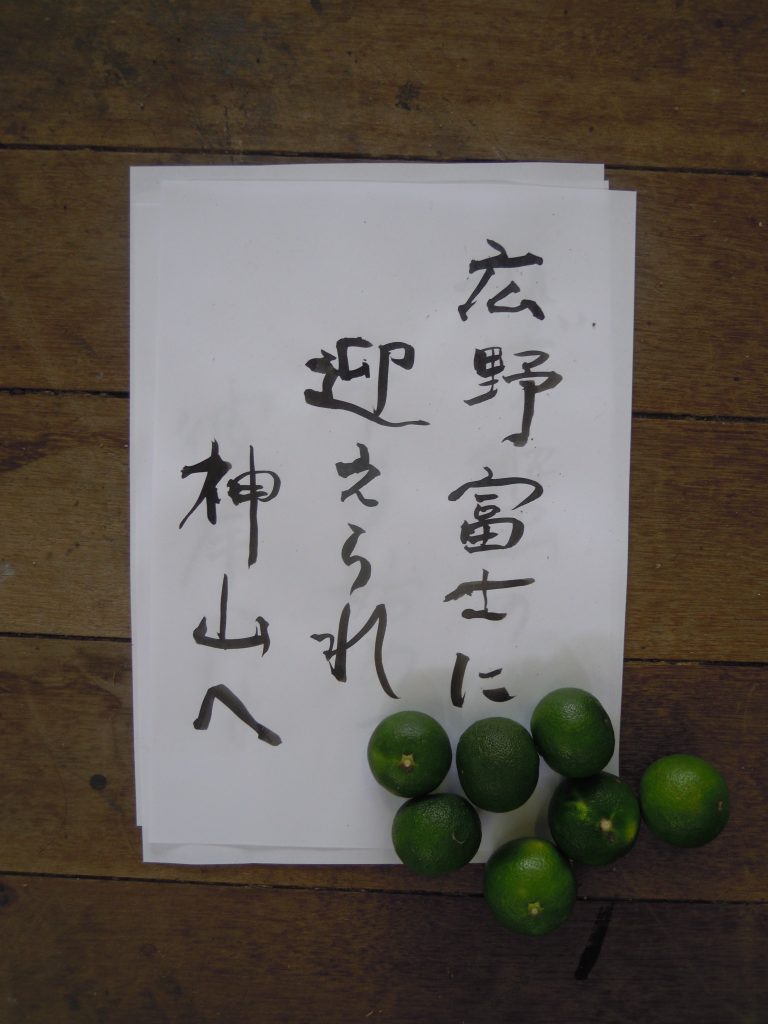 広野富士に
迎えられ
神山へ